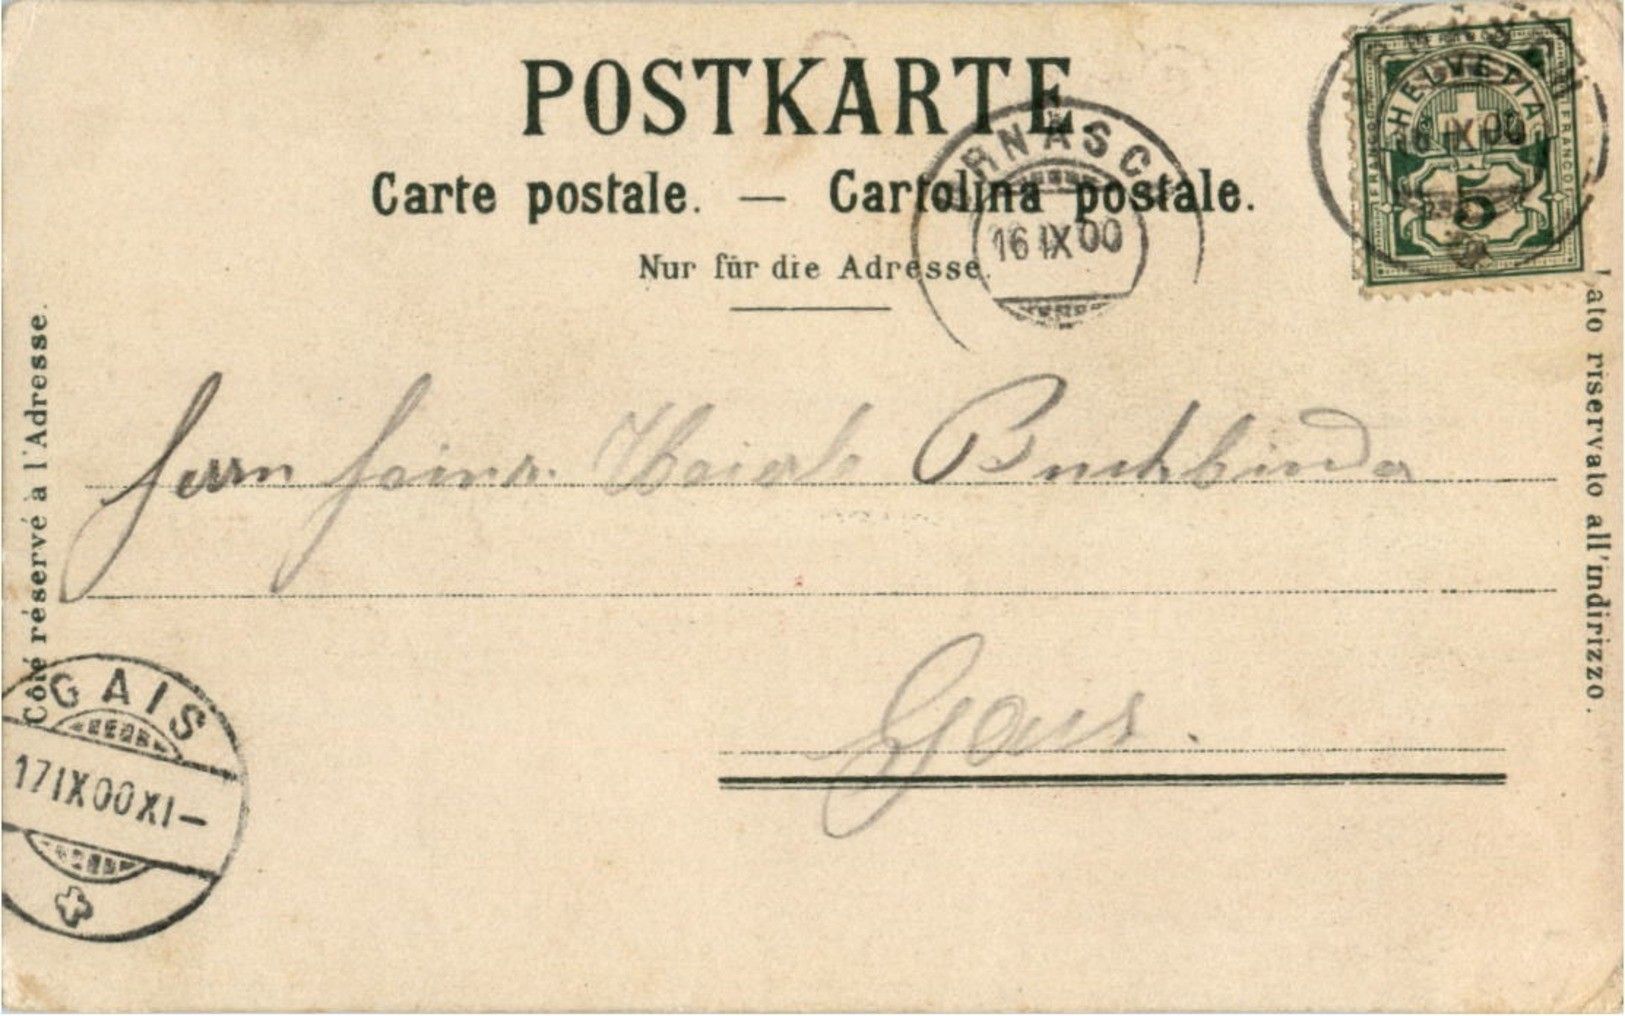 POSTKARTE
Carte postale. — Cartolina postale.
Nur für die Adresse.
HELVETIA
FRANCO
FRANCO
5
IX 00
RNÄSC
16 IX 00
Côté réservé à l'Adresse.
lato riservato all'indirizzo.
Herrn Heinr. Buchbinder
Gais.
GAIS
17 IX 00 XI –